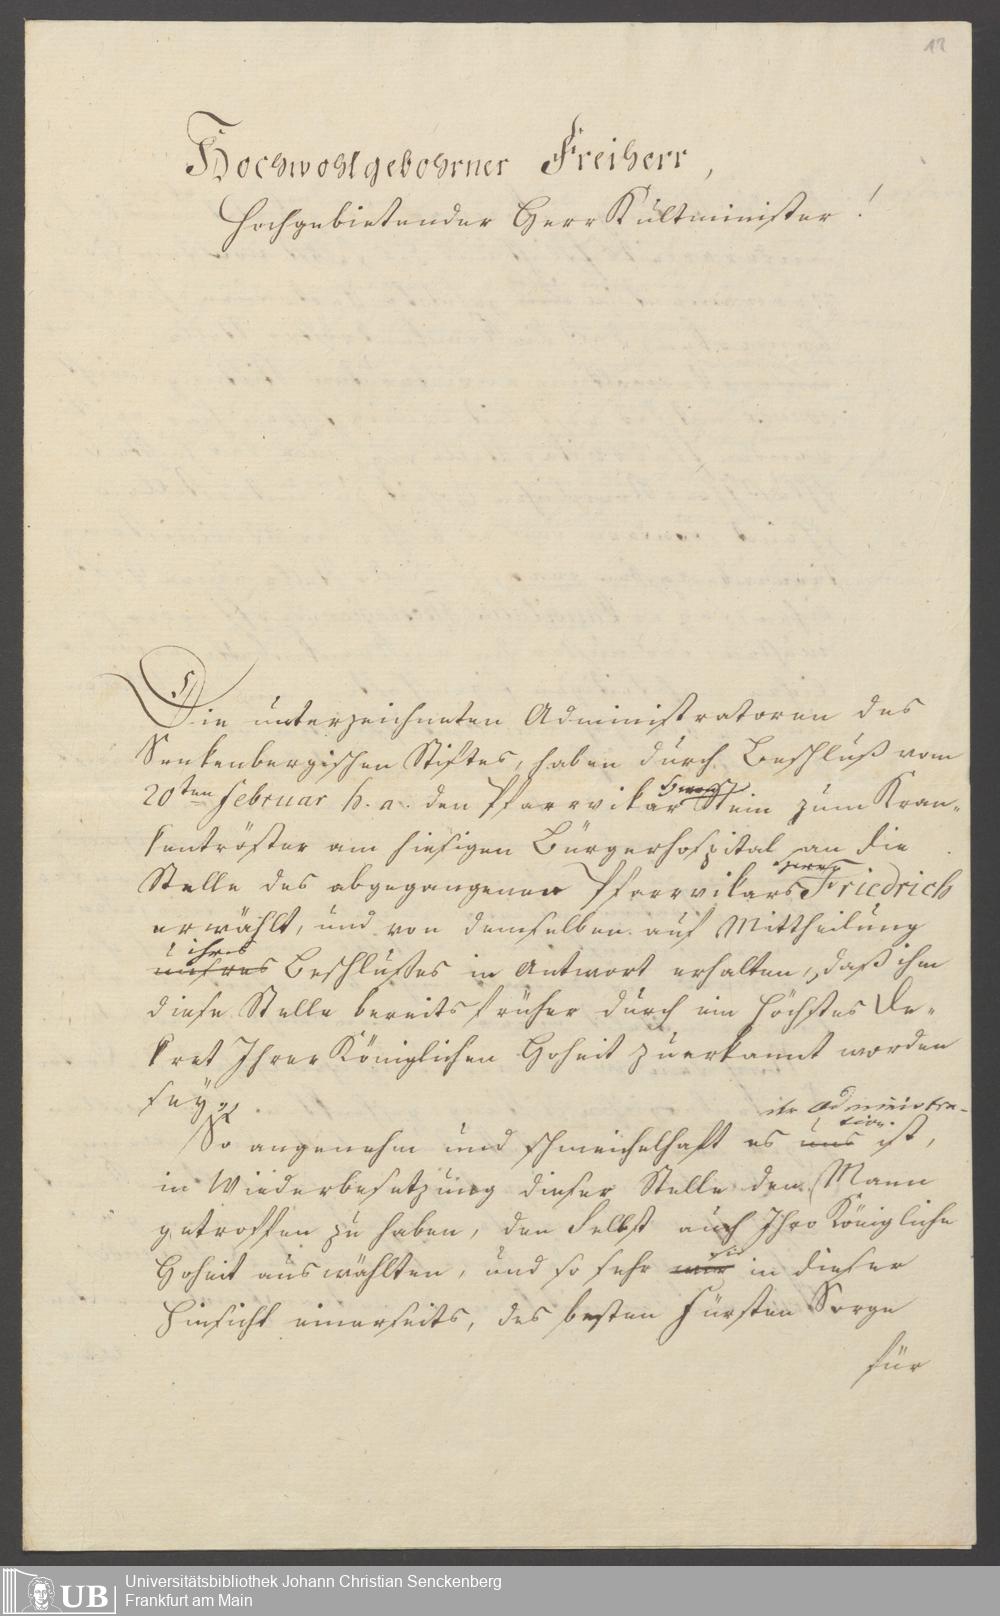 12
Hochwohlgebohrner Freiherr,
Hochgebietender Herr Kultminister!
Die unterzeichneten Administratoren des
Senkenbergischen Stiftes, haben durch Beschluß vom
20ten Februar h. a. den Pfarrvikar Stein zum Kran-
kentröster am hiesigen Bürgerhospital an die
Stelle des abgegangenen Pfarrvikars Friedrich
erwählt, und von demselben auf Mittheilung
ihres
unsres Beschlußes in Antwort erhalten, daß ihm
diese Stelle bereits früher durch ein höchstes De-
kret Ihrer Königlichen Hoheit zuerkannt worden
sey.
der Administra-
tion
So angenehm und schmeichelhaft es uns ist,
in Wiederbesetzung dieser Stelle den Mann
getroffen zu haben, den Selbst auch Ihro Königliche
sie
Hoheit auswählten, und so sehr wir in dieser
Hinsicht einerseits, des besten Fürsten Sorge
für
UB
Universitätsbibliothek Johann Christian Senckenberg
Frankfurt am Main